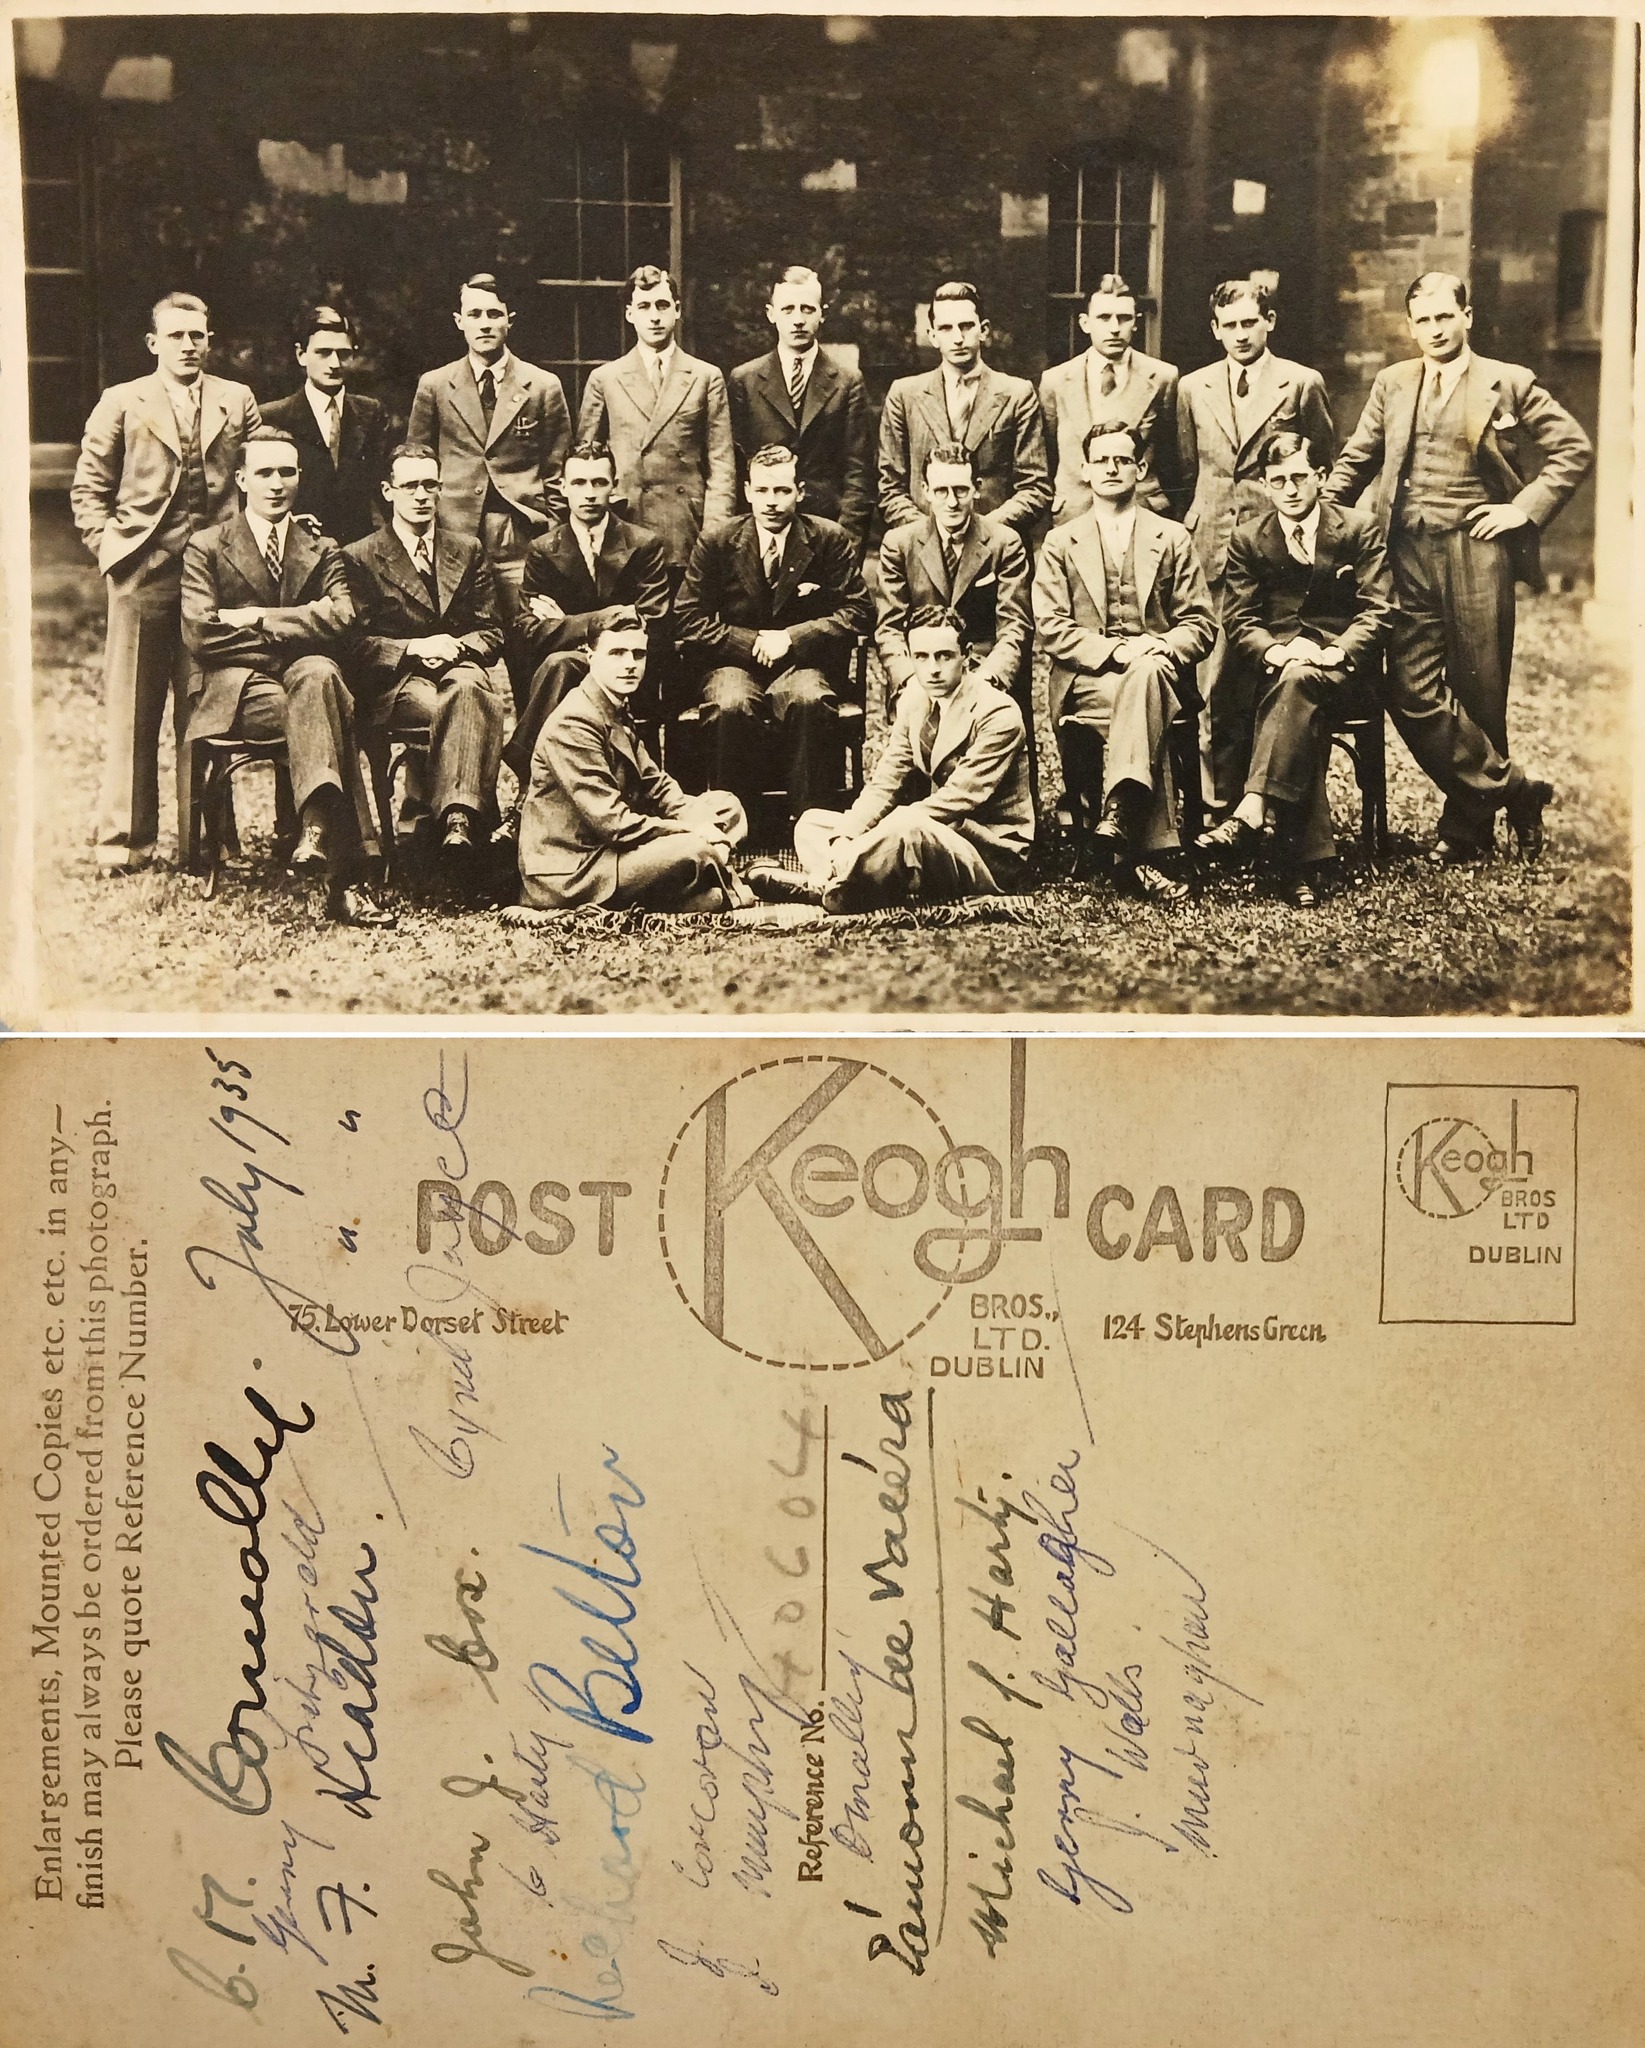 Enlargements, Mounted Copies etc. etc. in any—
finish may always be ordered from this photograph.
Please quote Reference Number.
POST Keogh CARD
BROS.,
LTD.
DUBLIN
75. Lower Dorset Street
124 Stephens Green
Keogh
BROS
LTD
DUBLIN
C. M. Connolly. July 1935
Gerry Fitzgerald
M. F. " "
John J. Cox. Cyril Joyce
C Harty
Richard Belton
J. Corcoran
J Murphy
Reference No. 40604
O'Malley
Éamonn de Valéra
Michael J. Harty.
Gerry Gallagher
J. Walls.